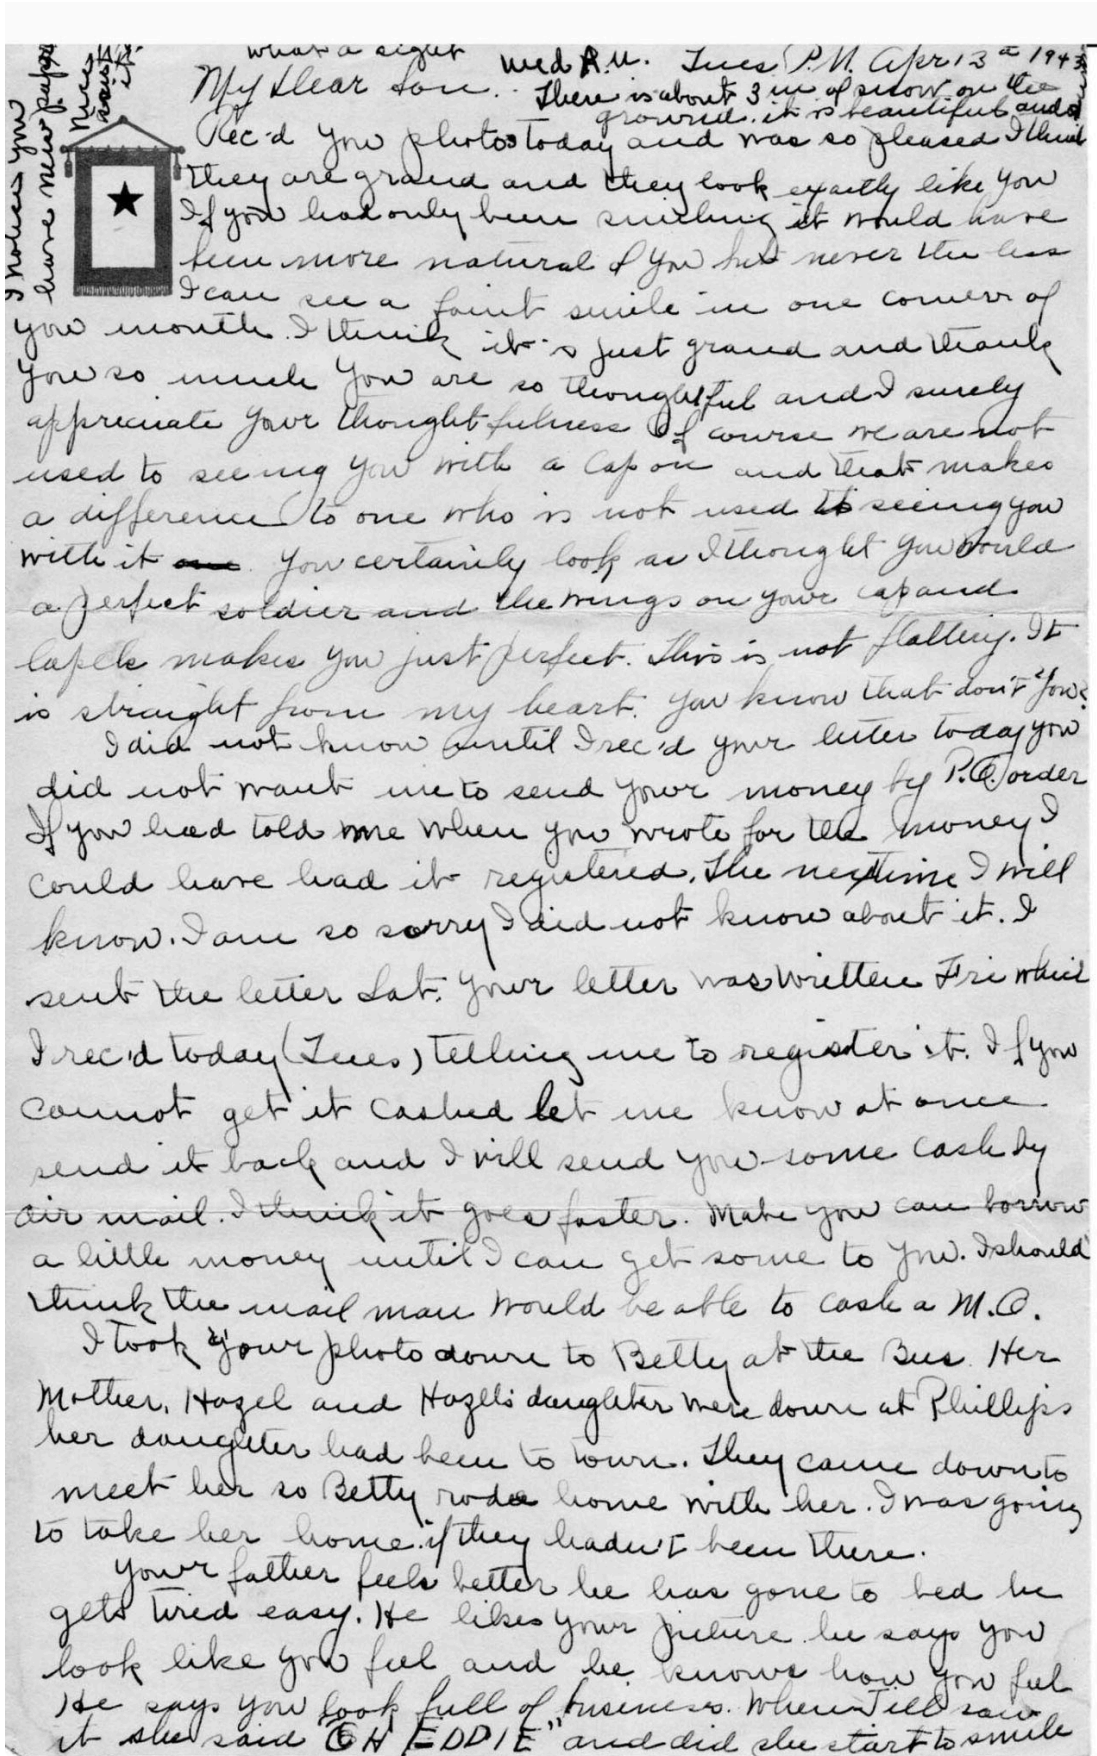 what a sight
Wed A.M. Tues P.M. Apr 13th 1943
My Dear Son.
There is about 3 in of snow on the
ground. it is beautiful and
Rec'd you photos today and was so pleased I think
they are grand and they look exactly like you
If you had only been smiling it would have
been more natural of you but never the less
I can see a faint smile in one corner of
your mouth. I think it's just grand and thank
you so much you are so thoughtful and I surely
appreciate your thoughtfulness Of course we are not
used to seeing you with a cap on and that makes
a difference to one who is not used to seeing you
with it on. You certainly look as I thought you would
a perfect soldier and the wings on your cap and
lapels makes you just perfect. This is not flattery. It
is straight from my heart. You know that don't you?
I did not know until I rec'd your letter today you
did not want me to send your money by P.O. order
If you had told me when you wrote for the money I
could have had it registered. The next time I will
know. I am so sorry I did not know about it. I
sent the letter Sat. Your letter was written Fri which
I rec'd today (Tues) telling me to register it. If you
cannot get it cashed let me know at once
send it back and I will send you some cash by
air mail. I think it goes faster. Mabe you can borrow
a little money until I can get some to you. I should
think the mail man would be able to cash a M.O.
I took your photo down to Betty at the Bus. Her
Mother, Hazel and Hazel's daughter were down at Phillips
her daughter had been to town. They came down to
meet her so Betty rode home with her. I was going
to take her home if they hadn't been there.
Your father feels better he has gone to bed he
gets tired easy. He likes your picture he says you
look like you feel and he knows how you feel
He says you look full of business. When Tell saw
it she said "OH EDDIE" and did she start to smile
I notice you
have new paper
Nice